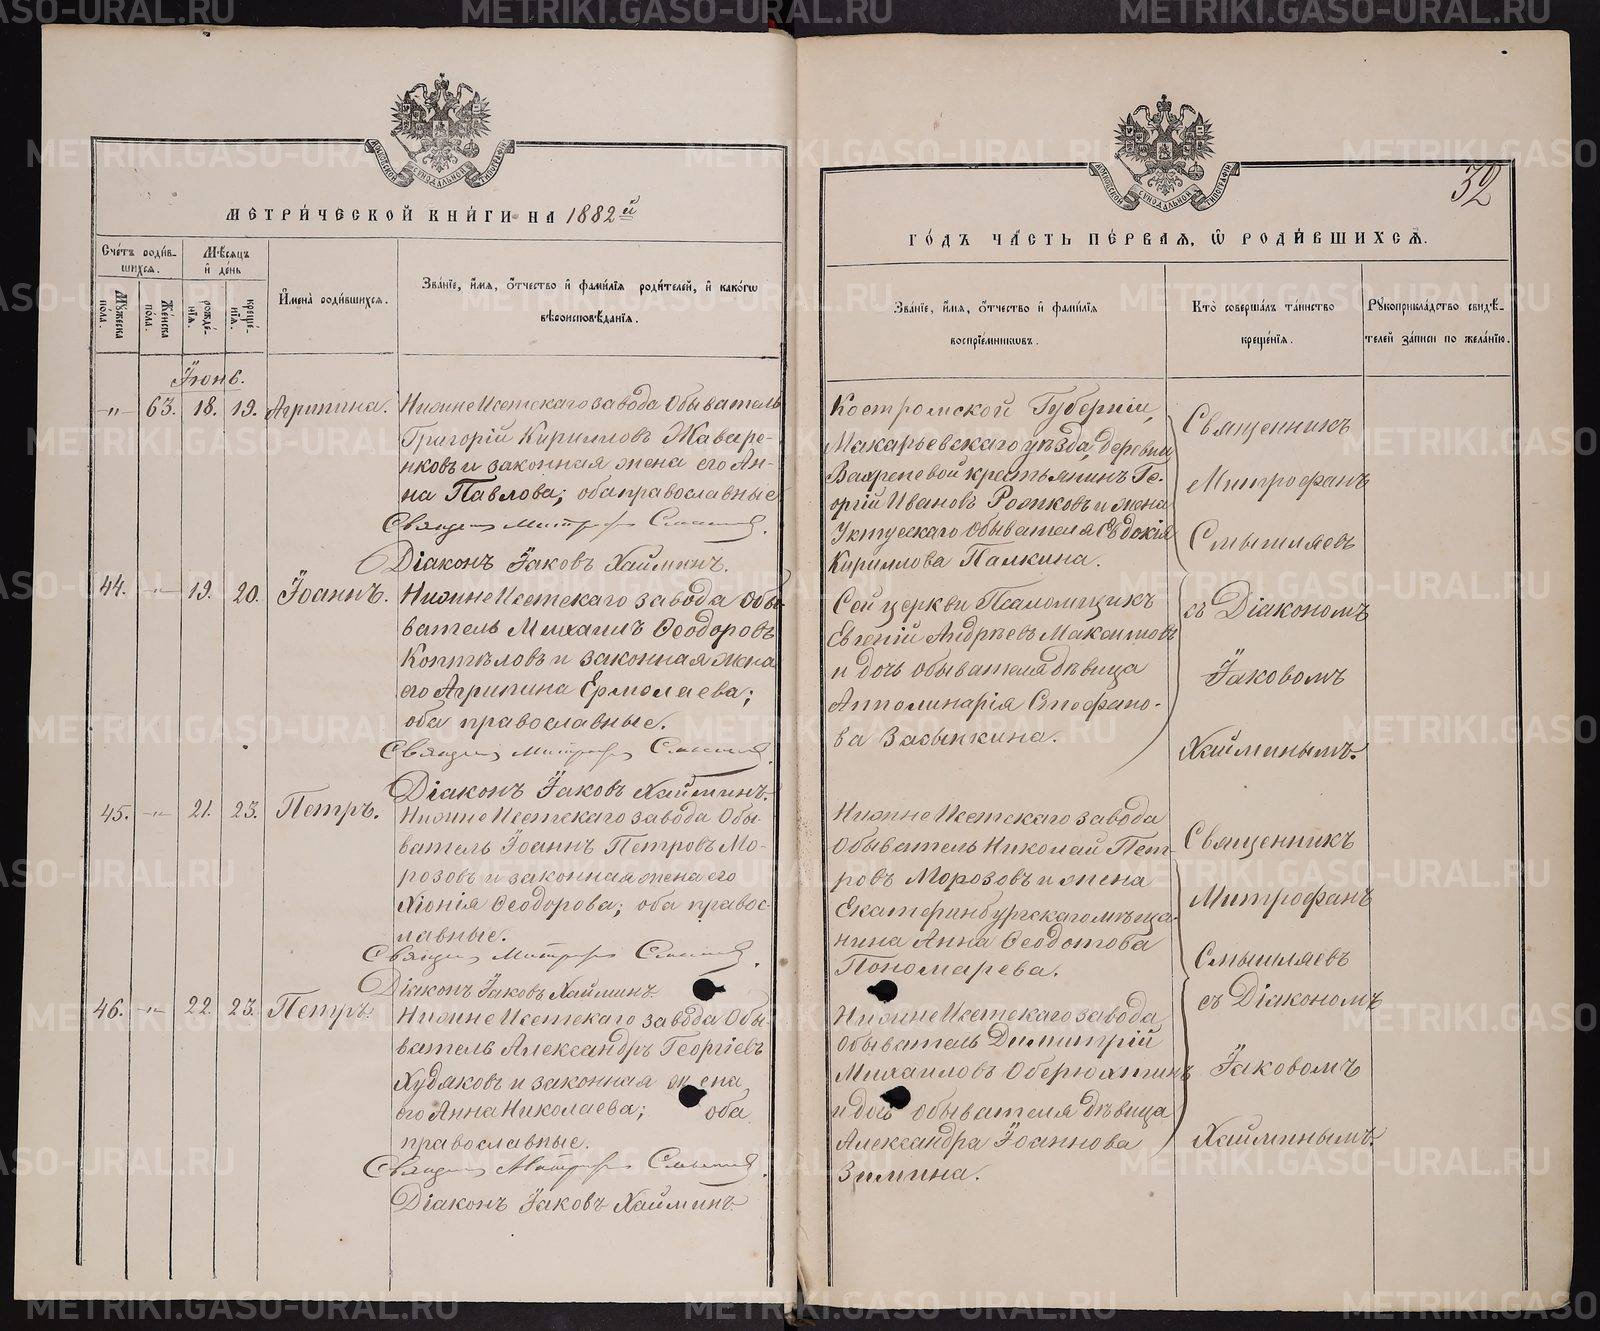 МЕТРИ́ЧЕСКОЙ КНИ́ГИ НА 1882й
Сче́тъ роди́в-
шихся.
Мѣ́сяцъ
и҆ де́нь
Мꙋ́жеска
пола.
Же́нска
пола.
рожде́-
нїѧ.
креще́-
нїѧ.
И҆мена̀ роди́вшихся.
Зва́нїе, и҆́мѧ, ѻ҆́тчество и҆ фами́лїѧ роди́телей, и҆ како́гѡ
вѣроисповѣ́данїѧ.
Іюнь.
-"- 63. 18. 19. Агрипина.
Нижне Исетскаго завода Обыватель
Григорій Кирилловъ Жаваре-
нковъ и законная жена его Ан-
на Павлова; оба православные
Священ Митроф Смышл
Діаконъ Іаковъ Хайминъ.
44. -"- 19. 20. Іоаннъ.
Нижне Исетскаго завода Обы-
ватель Михаилъ Ѳеодоровъ
Коптѣловъ и законная жена
его Агрипина Ермолаева;
оба православные.
Священ Митроф Смышл
Діаконъ Іаковъ Хайминъ.
45. -"- 21. 23. Петръ.
Нижне Исетскаго завода Обы-
ватель Іоаннъ Петровъ Мо-
розовъ и законная жена его
Хіонія Ѳеодорова; оба правос-
лавные.
Священ Митроф Смышл
Діаконъ Іаковъ Хайминъ.
46. -"- 22. 23. Петръ.
Нижне Исетскаго завода Обы-
ватель Александръ Георгіевъ
Худяковъ и законная жена
его Анна Николаева; оба
православные.
Священ Митроф Смышл
Діаконъ Іаковъ Хайминъ
32
ГО́ДЪ ЧА́СТЬ ПЕ́РВАѦ, Ѡ҆ РОДИ́ВШИХСѦ.
Зва́нїе, и҆́мѧ, ѻ҆́тчество и҆ фами́лїѧ
воспрїе́мниковъ.
Кто̀ соверша́лъ та́инство
креще́нїѧ.
Рꙋкоприкла́дство свидѣ́-
телей за́писи по жела́нїю.
Костромской Губерніи,
Макарьевскаго уѣзда, деревни
Вахреневой крестьянинъ Ге-
оргій Ивановъ Рожковъ и жена
Уктусскаго обывателя Евдокія
Кириллова Палкина.
Сей церкви Псаломщикъ
Евгеній Андреевъ Максимовъ
и дочь обывателя дѣвица
Апполинарія Стефано-
ва Засыпкина.
Нижне Исетскаго завода
Обыватель Николай Пет-
ровъ Морозовъ и жена
Екатеринбургскаго мѣща-
нина Анна Ѳеодотова
Пономарева.
Нижне Исетскаго завода
обыватель Димитрій
Михаиловъ Оберюхтинъ
и дочь обывателя дѣвица
Александра Іоаннова
Зимина.
Священникъ
Митрофанъ
Смышляевъ
съ Діакономъ
Іаковомъ
Хайминымъ.
Священникъ
Митрофанъ
Смышляевъ
съ Діакономъ
Іаковомъ
Хайминымъ.
METRIKI.GASO-URAL.RU